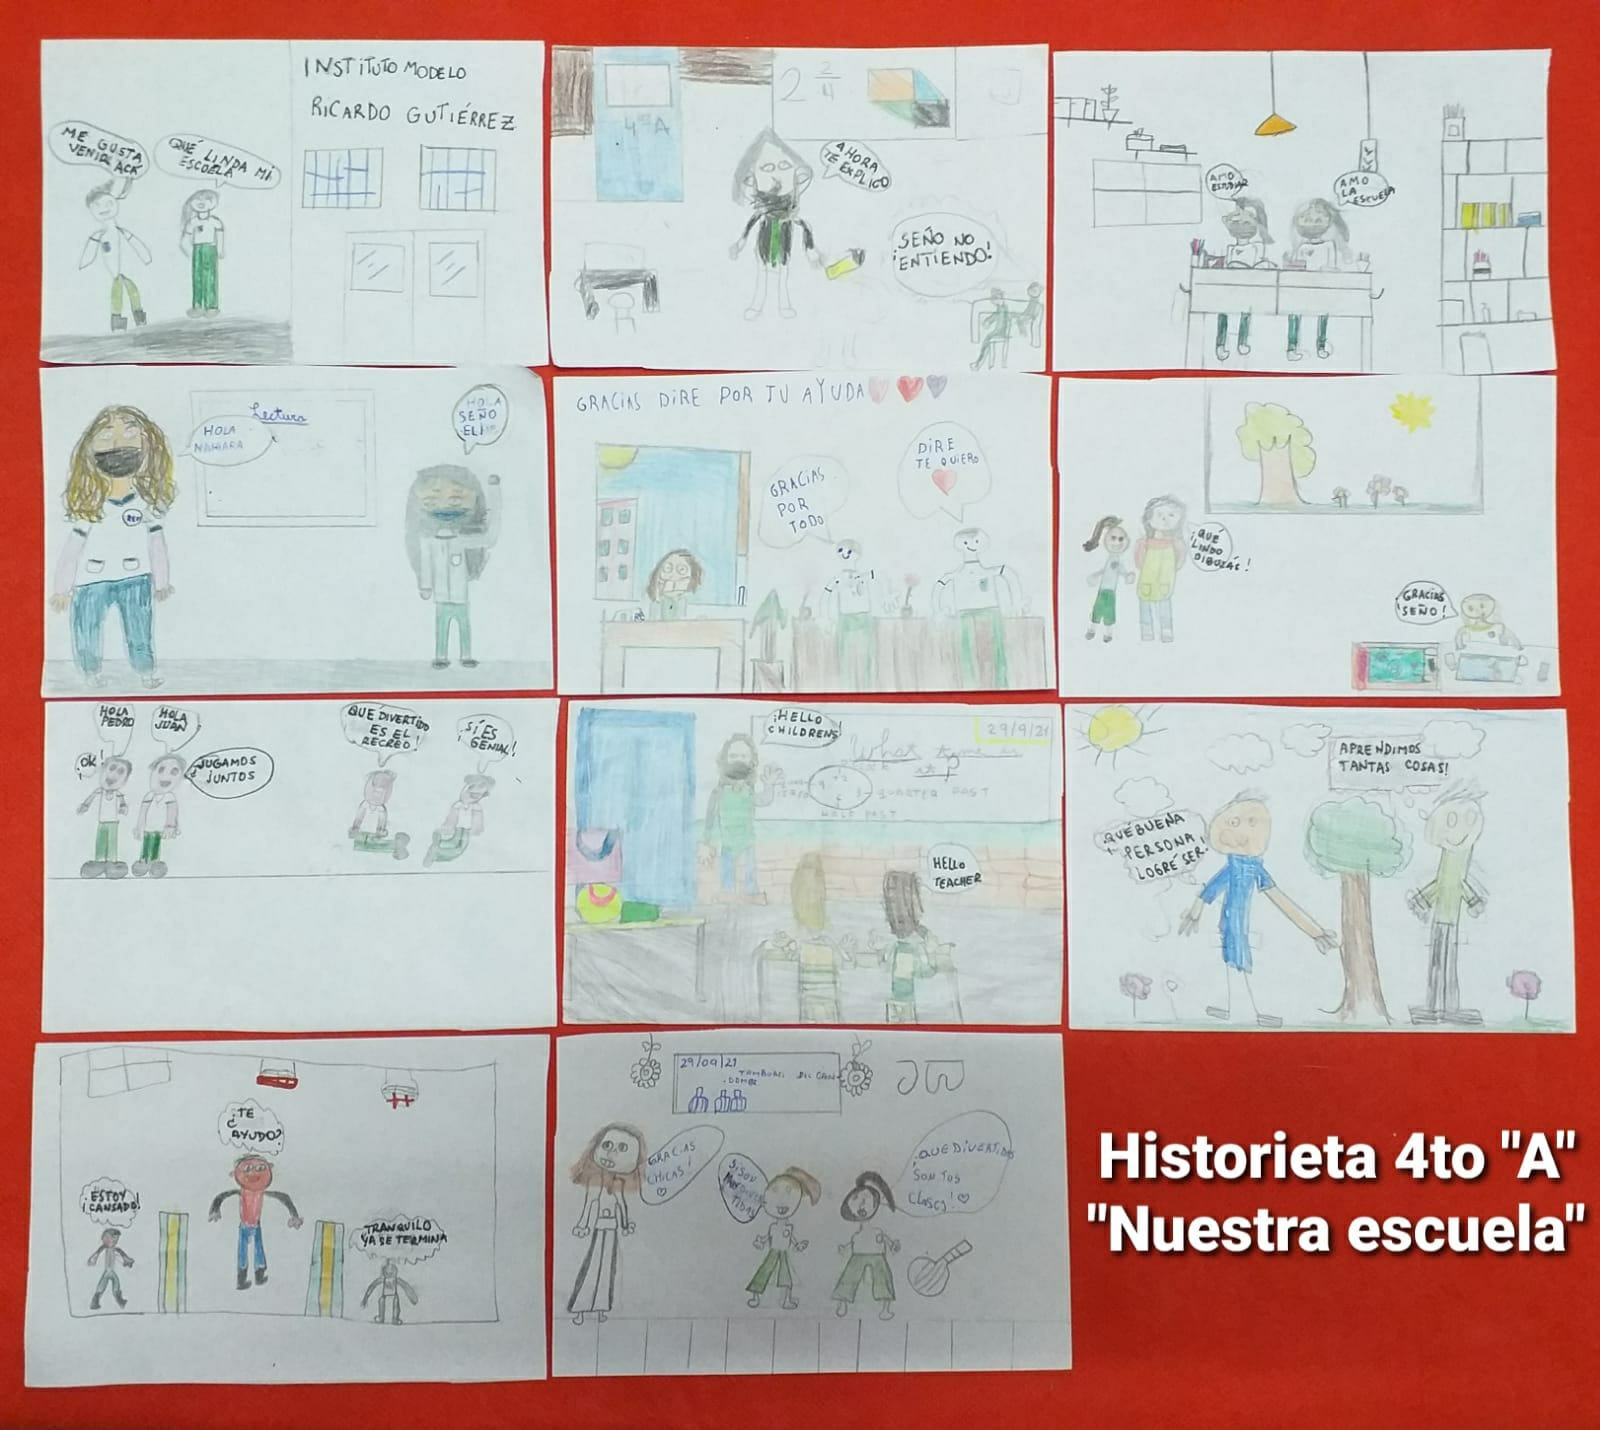 INSTITUTO MODELO
RICARDO GUTIÉRREZ
ME GUSTA
VENIR ACÁ
QUÉ LINDA MI
ESCUELA
4ºA
2 2/4
AHORA
TE EXPLICO
¡SEÑO NO
ENTIENDO!
AMO
ESTUDIAR
AMO
LA
ESCUELA
Lectura
HOLA
NAHIARA
HOLA
SEÑO
ELI
GRACIAS DIRE POR TU AYUDA
GRACIAS
POR
TODO
DIRE
TE QUIERO
¡QUÉ
LINDO
DIBUZÁS!
GRACIAS
SEÑO!
HOLA
PEDRO
HOLA
JUAN
¡OK!
¿JUGAMOS
JUNTOS
QUE DIVERTIDO
ES EL
RECREO!
¡SÍ ES
GENIAL!
¡HELLO
CHILDRENS!
29/9/21
What time is
it?
QUARTER PAST
HALF PAST
HELLO
TEACHER
QUÉ BUENA
PERSONA
LOGRÉ SER!
APRENDIMOS
TANTAS COSAS!
¡ESTOY
CANSADO!
¿TE
AYUDO?
TRANQUILO
YA SE TERMINA
29/09/21
GRACIAS
CHICAS!
SI SON
MUY DIVER
TIDAS
¡QUE DIVERTIDO
SON TUS
CLASES!
Historieta 4to "A"
"Nuestra escuela"